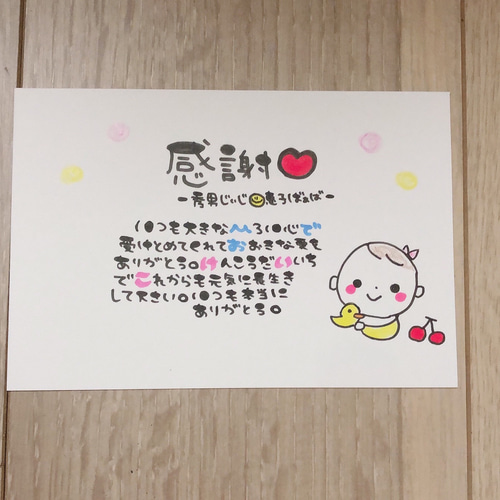 感謝
-秀男じぃじ 恵子ばぁば-
いつも大きなひろい心で
受けとめてくれておおきな愛を
ありがとう。けんこうだいいち
でこれからも元気に長生き
して下さい。いつも本当に
ありがとう。